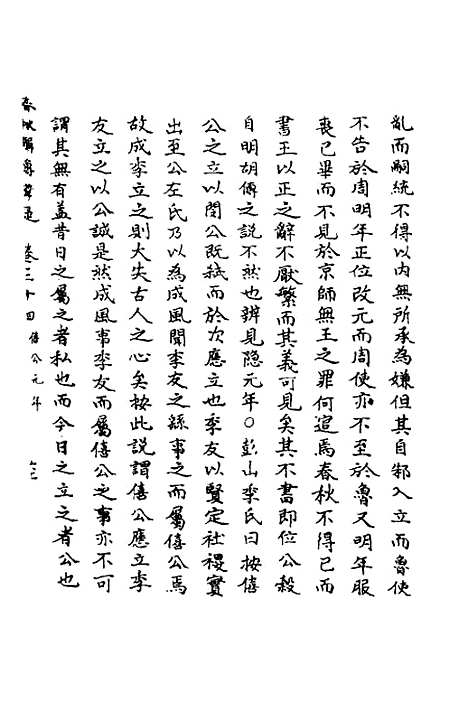 亂而嗣統不得以内無所承為嫌但其自邾入立而魯使
不告於周明年正位改元而周使亦不至於魯又明年服
喪已畢而不見於京師無王之罪何逭焉春秋不得已而
書王以正之辭不厭繁而其義可見矣其不書即位公穀
自明胡傳之説不然也辨見隐元年○彭山季氏曰按僖
公之立以閔公既弑而於次應立也季友以賢定社稷實
出至公左氏乃以為成風聞季友之繇事之而屬僖公焉
故成季立之則大失古人之心矣按此説謂僖公應立季
友立之以公誠是然成風事季友而屬僖公之事亦不可
謂其無有盖昔日之屬之者私也而今日之立之者公也
卷三十四 僖公元年